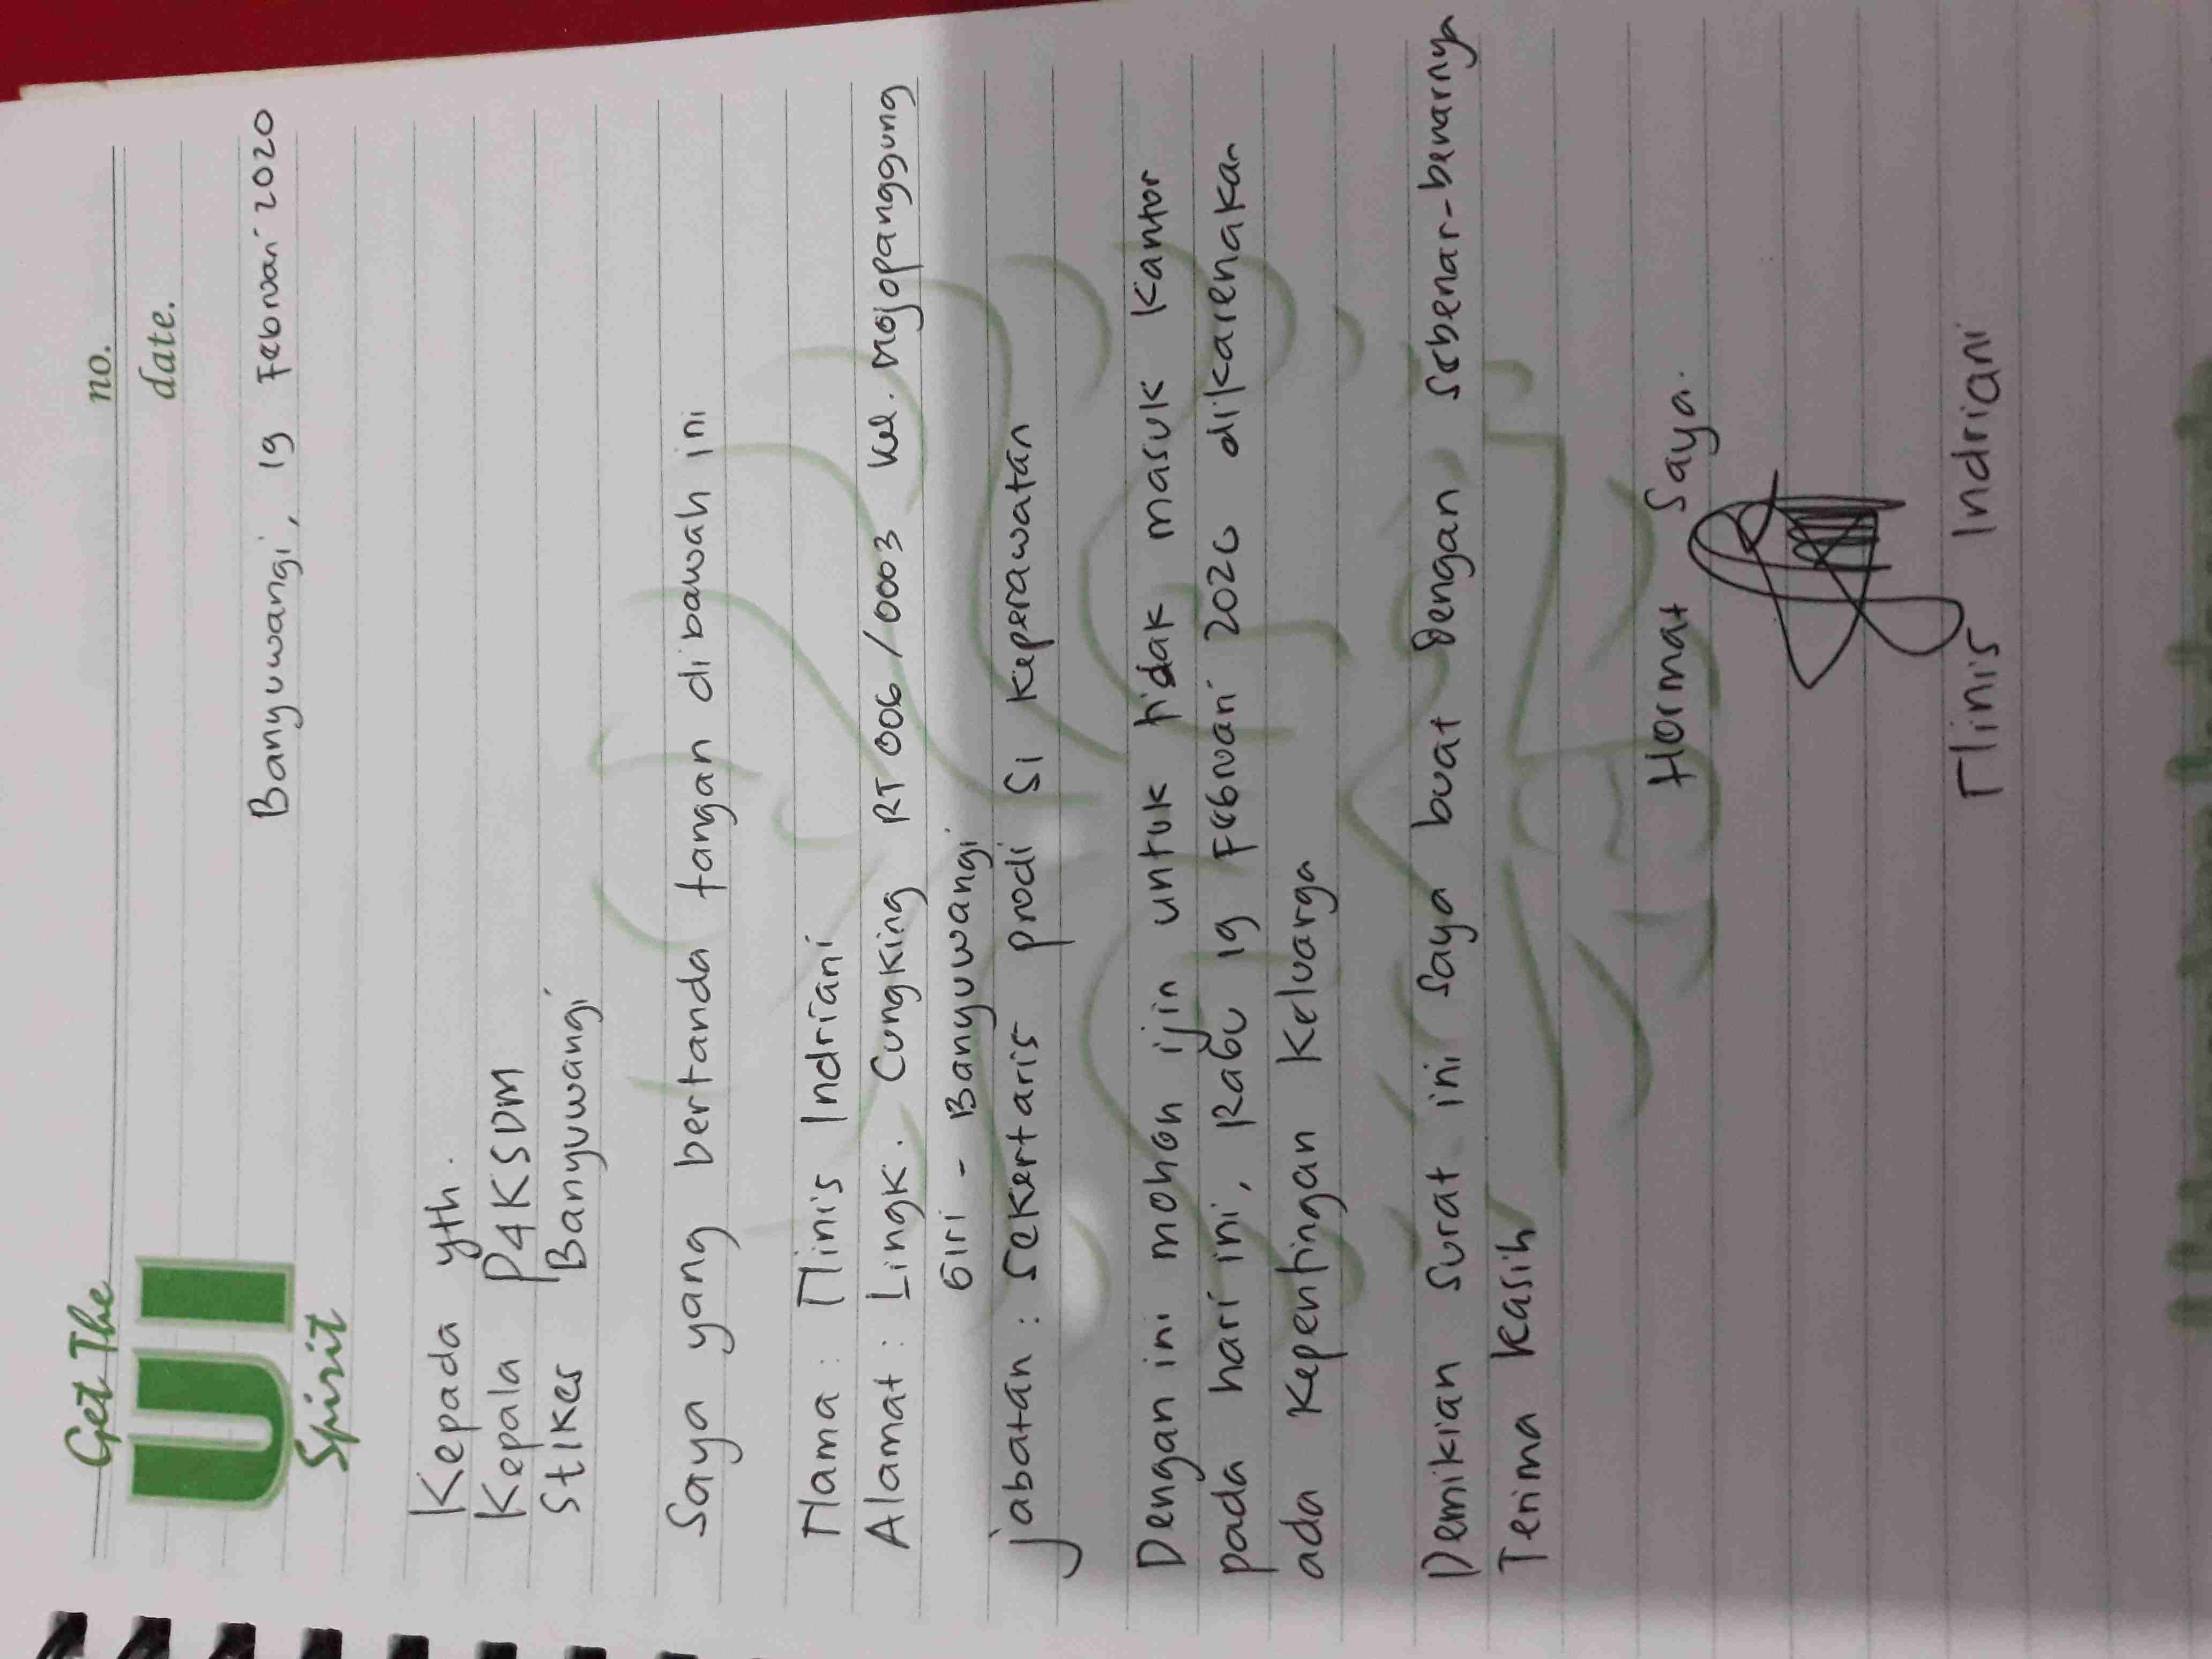 Get The
UI
Spirit
no.
date.
Banyuwangi, 19 Februari 2020
Kepada yth.
Kepala P4KSDM
Stikes Banyuwangi
Saya yang bertanda tangan dibawah ini
Nama : Ninis Indriani
Alamat : Lingk. Cungking RT 006 / 0003 Kel. Mojopanggung
Giri - Banyuwangi
jabatan : Sekertaris prodi S1 Keperawatan
Dengan ini mohon ijin untuk tidak masuk kantor
pada hari ini, Rabu 19 Februari 2020 dikarenakan
ada Kepentingan Keluarga
Demikian surat ini saya buat dengan sebenar-benarnya
Terima kasih
Hormat Saya.
Ninis Indriani